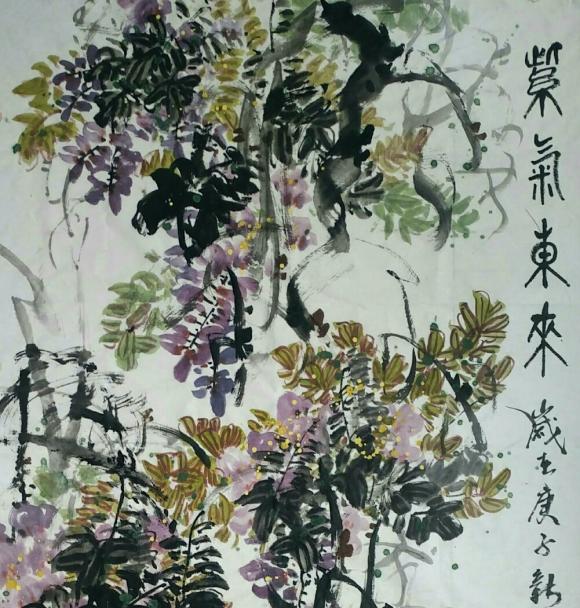 紫氣東來
歲在庚子新